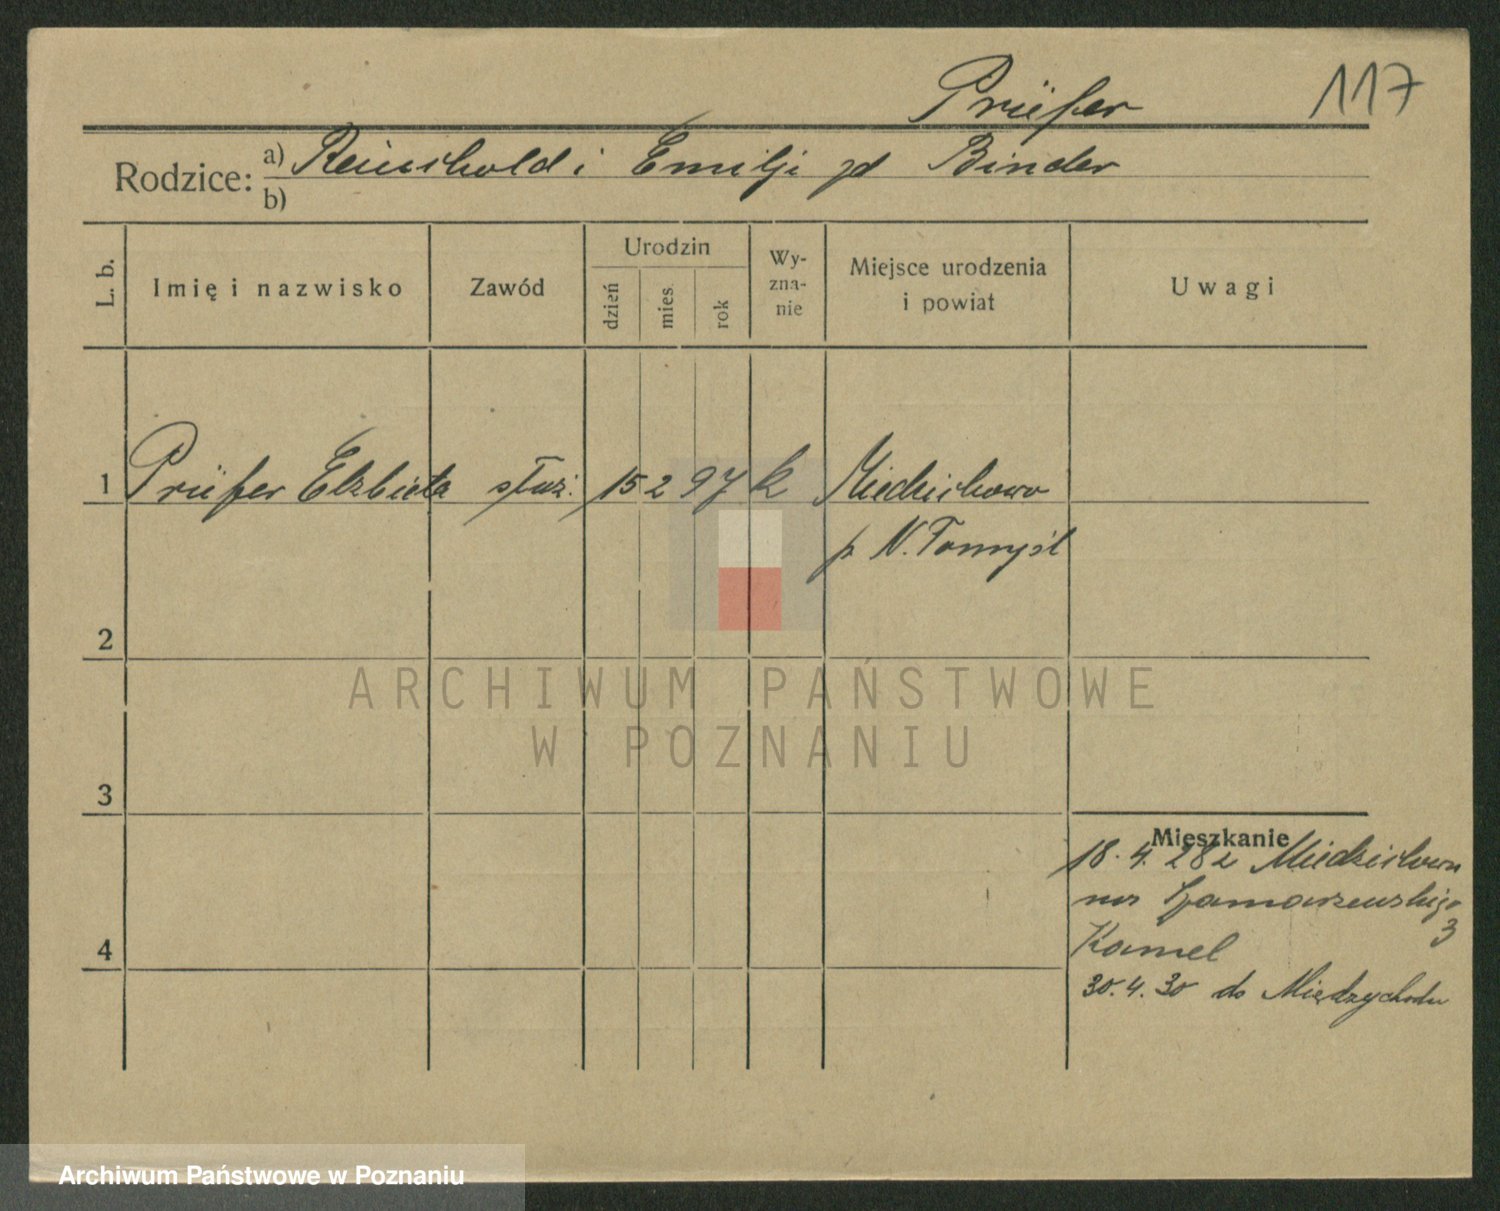 Prüfer 117
Rodzice: a) Reinhold i Emilji zd Binder
b)
L. b. Imię i nazwisko Zawód Urodzin dzień mies. rok Wy-zna-nie Miejsce urodzenia i powiat Uwagi
1 Prüfer Elzbieta służ. 15 2 97 k Miedzichowo
p N. Tomyśl
2
ARCHIWUM PAŃSTWOWE
W POZNANIU
3
Mieszkanie
18. 4. 28 z Miedzichowa
na
4 Kamel 3
30. 4. 30 do Międzychodu
Archiwum Państwowe w Poznaniu